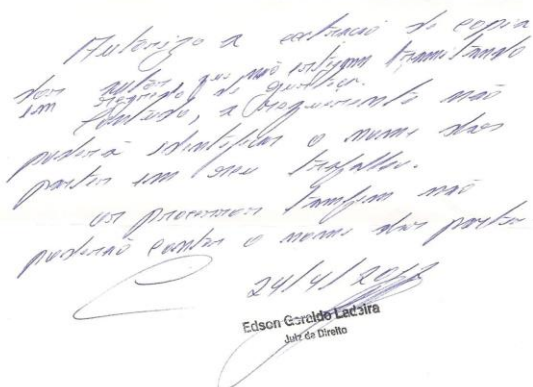 Autorizo a extração de copia
dos autos que não estejam tramitando
em segredo de justiça.
Contudo, a requerente não
poderá identificar o nome das
partes em seu trabalho.
os processos também não
poderão conter o nome das partes
24/4/2012
Edson Geraldo Ladeira
Juiz de Direito